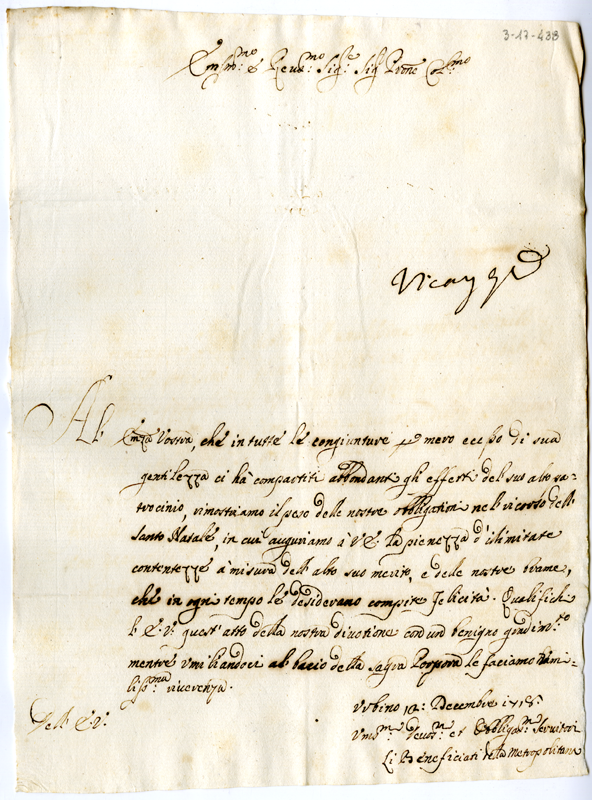 3-17-438
Em̃mo: e Reud:mo Sig:re Sig Prone Col:mo
All
Emza Vostra, che in tutte le congiunture per mero eccesso di sua
gentilezza ci hà compartiti abbondanti gli effetti del suo alto pa=
trocinio, rimostriamo il peso delle nostre obbligationi nel ricorso dell
Santo Natale, in cui auguriamo à V.E. la pienezza d'illimitate
contentezze à misura dell'alto suo merito, e delle nostre brame,
che in ogni tempo le desiderano compite felicità. Qualifichi
l'E.V. quest'atto della nostra divotione con un benigno gradim:to
mentre umiliandoci al bacio della sagra Porpora le facciamo umi=
liss:ma riverenza.
Urbino Decembre
Dell'E.V.
Vmi:mi Deuot:mi et Obbligat:mi Seruitori
Li Beneficiati della Metropolitana